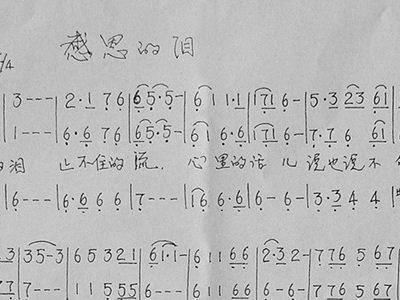 感恩的泪
/4
3 - - - | 2·1 7 6 | 6 5·5·- | 6 1 1·1 | 171 6 - | 5·3 23 61
1 - - - | 6·6 7 6 | 6 5·5·- | 6 1 6·6 | 171 6 - | 7·7 6 61
泪 止不住的流, 心里的话儿说也说不
6 - - - | 6·6 6 6 | 7 - - - | 16 6·6 | 6 - 6 - | 3·3 4 4
3 | 3 5 - 3 | 6 5 3 2 1 | 6 1·1 - | 6 1 1 6 6 | 2·3 2 - | 7 7 6 5 6 7
7 | 7 - - - | 1 1 5 5 5 | 6 - - - | 6 1 1 6 6 | 6 - 6 - | 7 7 6 5 6 7